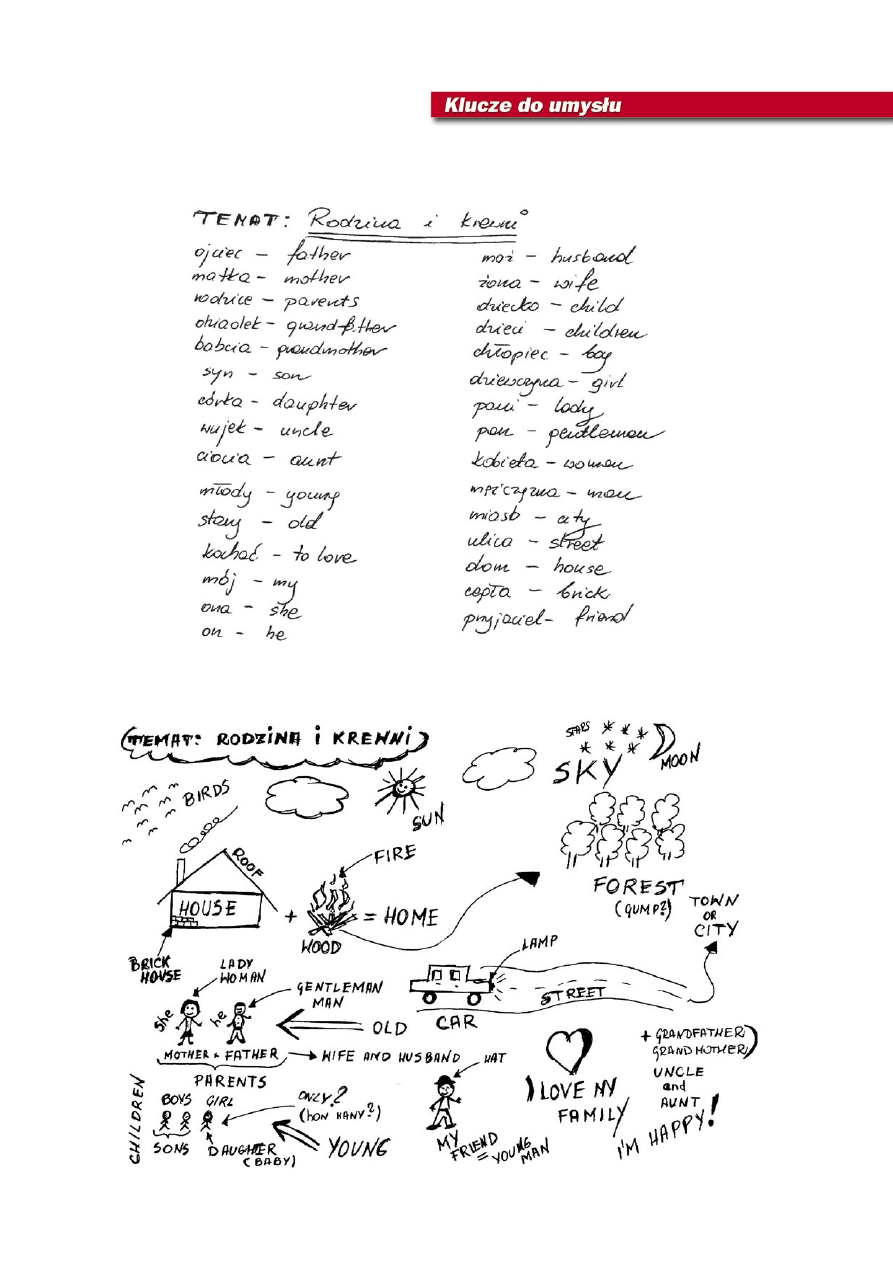 Klucze do umysłu
TEMAT: Rodzina i krewni
ojciec – father
matka – mother
rodzice – parents
dziadek – grandfather
babcia – grandmother
syn – son
córka – daughter
wujek – uncle
ciocia – aunt
młody – young
stary – old
kochać – to love
mój – my
ona – she
on – he
mąż – husband
żona – wife
dziecko – child
dzieci – children
chłopiec – boy
dziewczyna – girl
pani – lady
pan – gentleman
kobieta – woman
mężczyzna – man
miasto – city
ulica – street
dom – house
cegła – brick
przyjaciel – friend
(TEMAT: RODZINA i KREWNI)
BIRDS
SUN
STARS
SKY
MOON
ROOF
HOUSE
+
FIRE
WOOD
= HOME
FOREST
(GUMP?)
TOWN
OR
CITY
BRICK
HOUSE
LADY
WOMAN
she
he
GENTLEMAN
MAN
OLD
LAMP
CAR
STREET
MOTHER + FATHER
WIFE AND HUSBAND
PARENTS
CHILDREN
BOYS GIRL
ONLY?
(HOW MANY?)
SONS
DAUGHTER
(BABY)
YOUNG
HAT
MY
FRIEND
= YOUNG
MAN
I LOVE MY
FAMILY
+ GRANDFATHER
GRANDMOTHER
UNCLE
and
AUNT
I'M HAPPY!